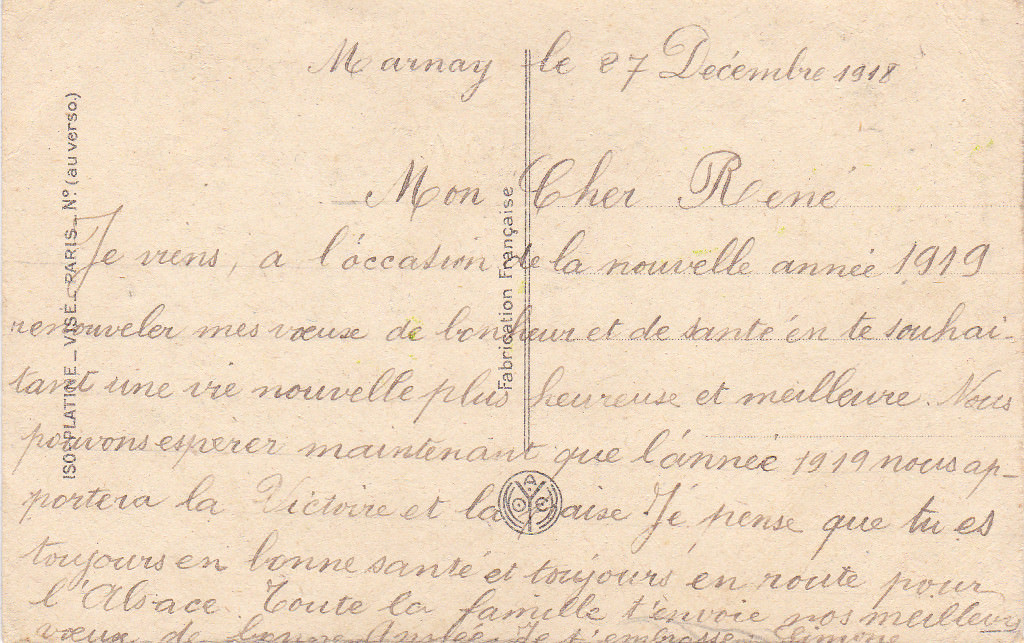 Marnay le 27 Décembre 1918
Mon Cher René
Je viens, a l'óccasion de la nouvelle année 1919
renouveler mes vœux de bonheur et de santé en te souhai-
tant une vie nouvelle plus heureuse et meilleure. Nous
pouvons esperer maintenant que l'année 1919 nous ap-
portera la Victoire et la paise. Je pense que tu es
toujours en bonne santé et toujours en route pour
l'Alsace. Toute la famille t'envoie nos meilleurs
vœux de bonne Année Je t'embrasse
ISOPLATINE _ VISE _ PARIS _ Nº. (au verso.)
Fabrication Française